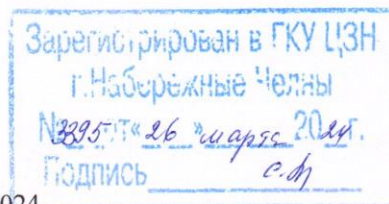 Зарегистрирован в ГКУ ЦЗН
г.Набережные Челны
№3395 от «26» марта 2024г.
Подпись
024